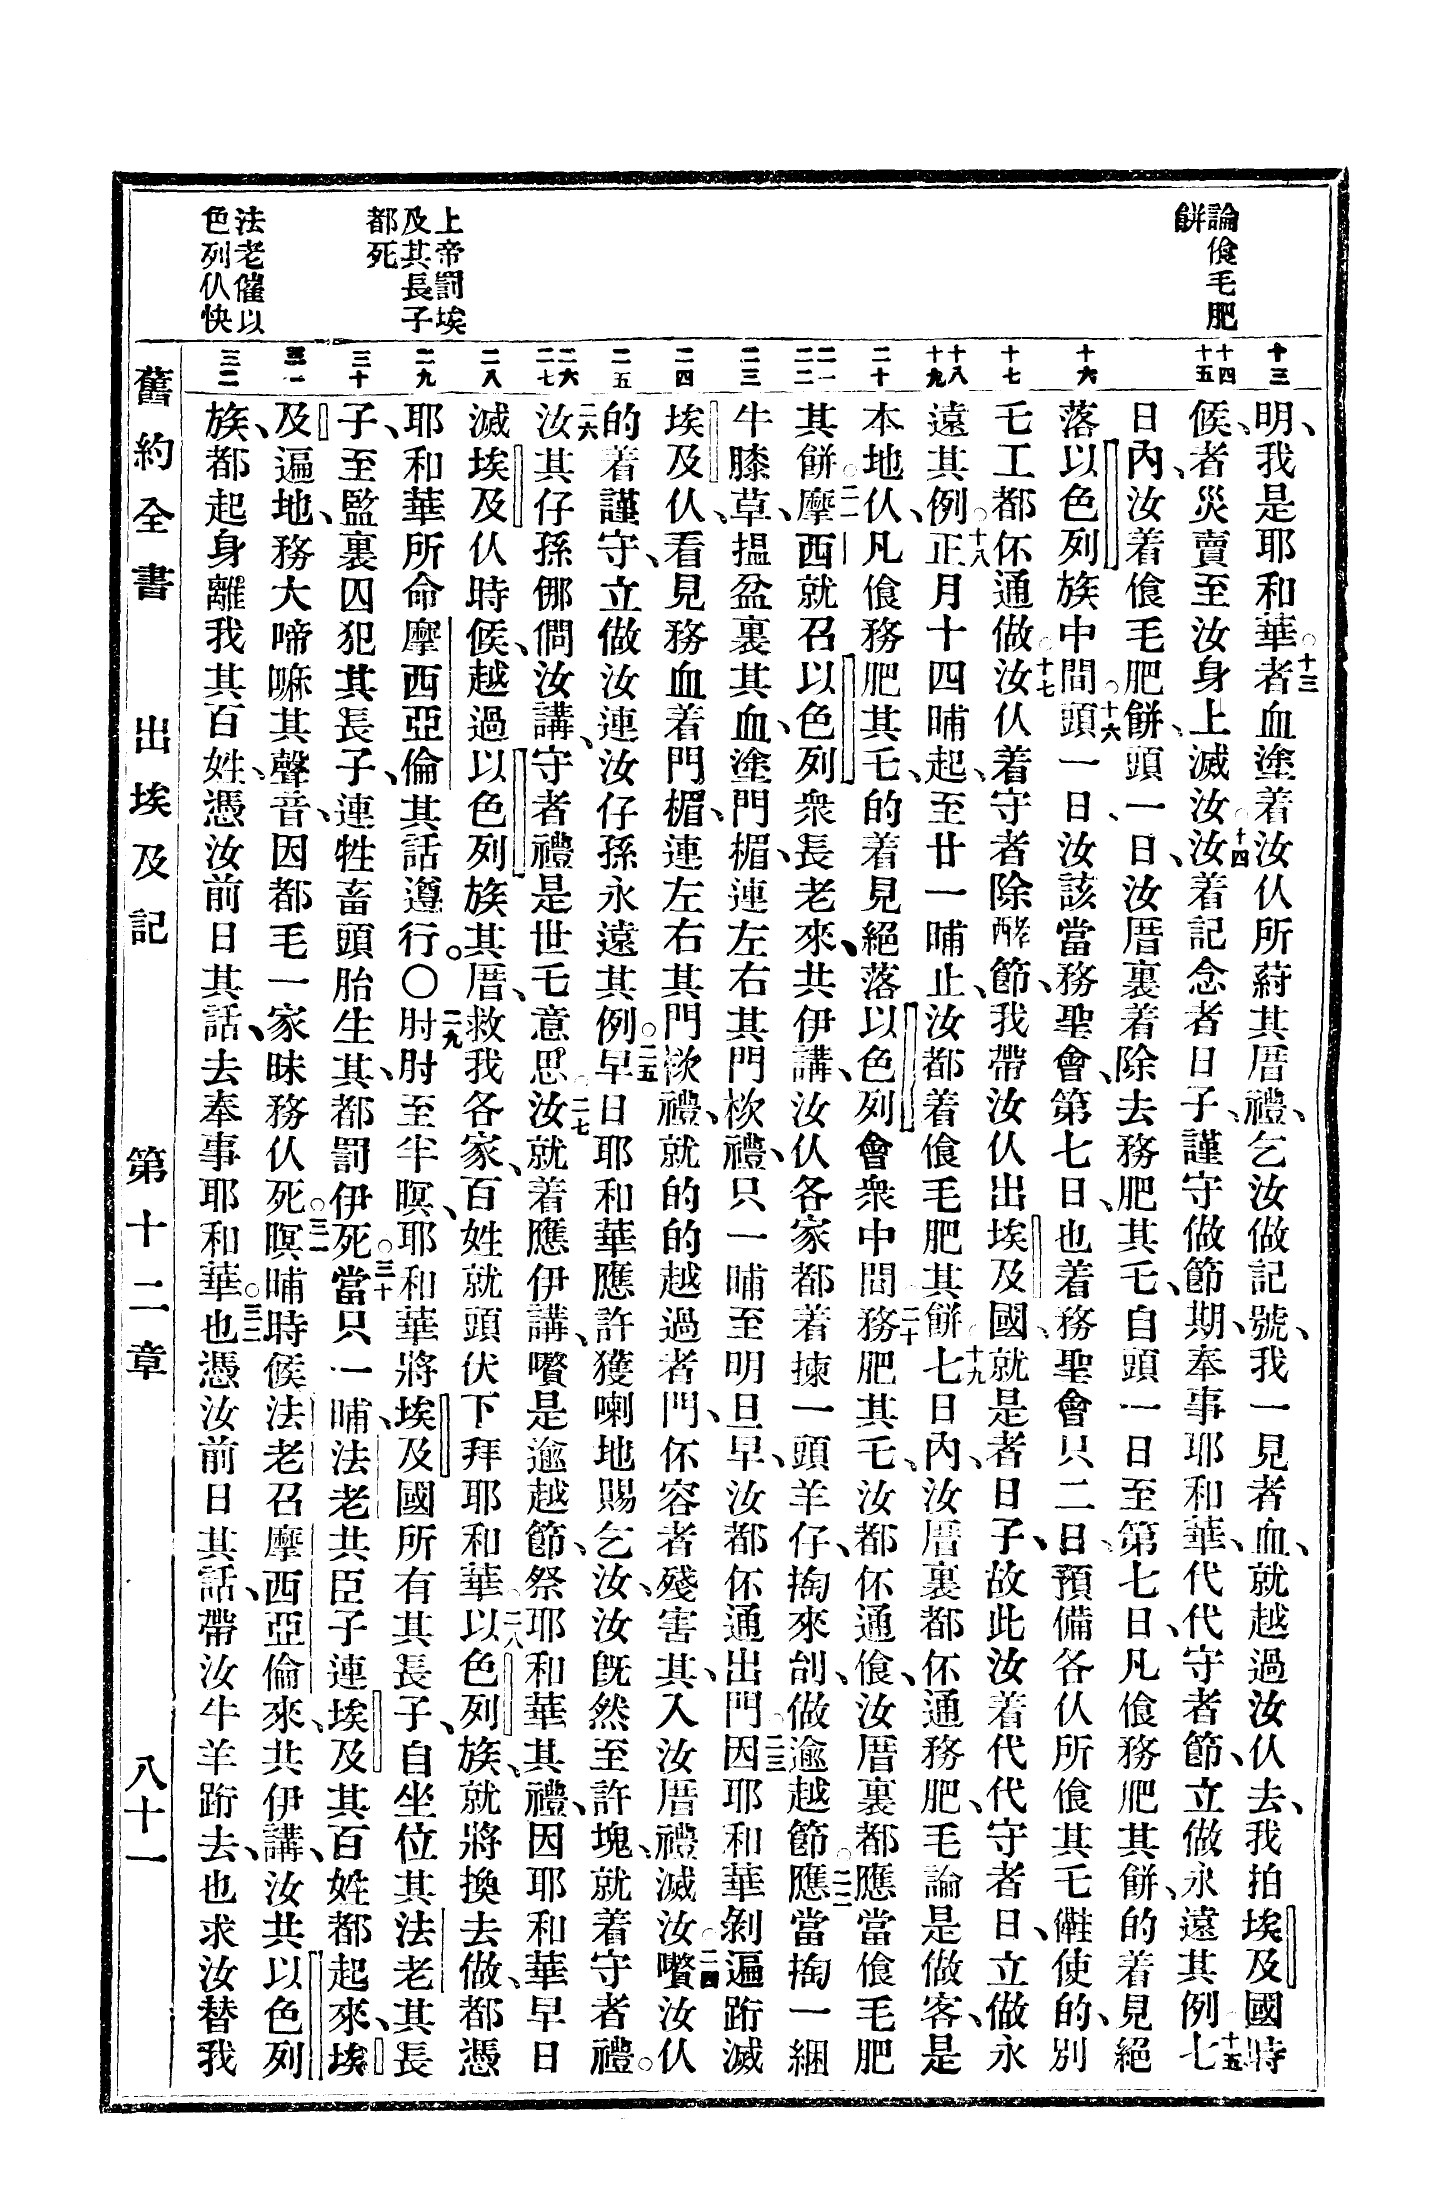 論飡毛肥
餅
上帝罰埃
及其長子
都死
法老催以
色列仈快
十三
十四
十五
十六
十七
十八
十九
二十
二一
二二
二三
二四
二五
二六
二七
二八
二九
三十
三一
三二
明、我是耶和華○十三者血塗着汝仈所蒔其厝禮、乞汝做記號、我一見者血、就越過汝仈去、我拍埃及國時
候、者災賣至汝身上、滅汝○十四汝着記念者日子、謹守做節期、奉事耶和華、代代守者節、立做永遠其例○十五七
日內、汝着飡毛肥餅、頭一日、汝厝裏着除去務肥其乇、自頭一日至第七日、凡飡務肥其餅、的着見絕
落以色列族中間○十六頭一日、汝該當務聖會、第七日、也着務聖會、只二日、預備各仈所飡其乇、使的、別
乇工都伓通做○十七汝仈着守者除酵節、我帶汝仈出埃及國、就是者日子、故此汝着代代守者日、立做永
遠其例○十八正月十四晡起、至廿一晡止、汝都着飡毛肥其餅○十九七日內、汝厝裏都伓通務肥、毛論是做客、是
本地仈、凡飡務肥其乇、的着見絕落以色列會衆中間○二十務肥其乇、汝都伓通飡、汝厝裏都應當飡毛肥
其餅○二一摩西就召以色列衆長老來、共伊講、汝仈各家都着揀一頭羊仔、掏來刣、做逾越節○二二應當掏一綑
牛膝草、搵盆裏其血、塗門楣、連左右其門桭禮、只一晡至明旦早、汝都伓通出門○二三因耶和華剝遍跲滅
埃及仈、看見務血着門楣、連左右其門桭禮、就的的越過者門、伓容者殘害其、入汝厝禮、滅汝○二四汝仈
的着謹守、立做汝連汝仔孫永遠其例○二五早日耶和華應許獲喇地賜乞汝、汝旣然至許塊、就着守者禮○
二六汝其仔孫倻僩汝講、守者禮是世乇意思○二七汝就着應伊講、是逾越節、祭耶和華其禮、因耶和華早日
滅埃及仈時候、越過以色列族其厝、救我各家、百姓就頭伏下拜耶和華○二八以色列族、就將換去做、都憑
耶和華所命摩西亞倫其話遵行。○二九肘肘至半暝、耶和華將埃及國所有其長子、自坐位其法老其長
子、至監裏囚犯其長子、連牲畜頭胎生其、都罰伊死○三十當只一晡、法老共臣子連埃及其百姓都起來、埃
及遍地、務大啼嘛其聲音、因都毛一家昧務仈死○三一暝晡時候、法老召摩西亞倫來、共伊講、汝共以色列
族、都起身離我其百姓、憑汝前日其話、去奉事耶和華○三二也憑汝前日其話、帶汝牛羊跲去、也求汝替我
舊約全書 出埃及記 第十二章 八十一